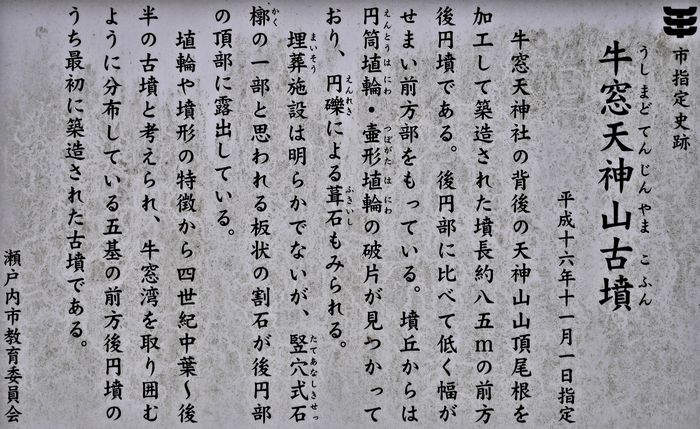 市指定史跡
うしまどてんじんやま こふん
牛窓天神山古墳
平成十六年十一月一日指定
牛窓天神社の背後の天神山山頂尾根を
加工して築造された墳長約八五mの前方
後円墳である。後円部に比べて低く幅が
せまい前方部をもっている。墳丘からは
えんとうはにわ つぼがたはにわ
円筒埴輪・壷形埴輪の破片が見つかって
えんれき ふきいし
おり、円礫による葺石もみられる。
まいそう たてあなしきせっ
埋葬施設は明らかでないが、竪穴式石
かく
槨の一部と思われる板状の割石が後円部
の頂部に露出している。
埴輪や墳形の特徴から四世紀中葉～後
半の古墳と考えられ、牛窓湾を取り囲む
ように分布している五基の前方後円墳の
うち最初に築造された古墳である。
瀬戸内市教育委員会